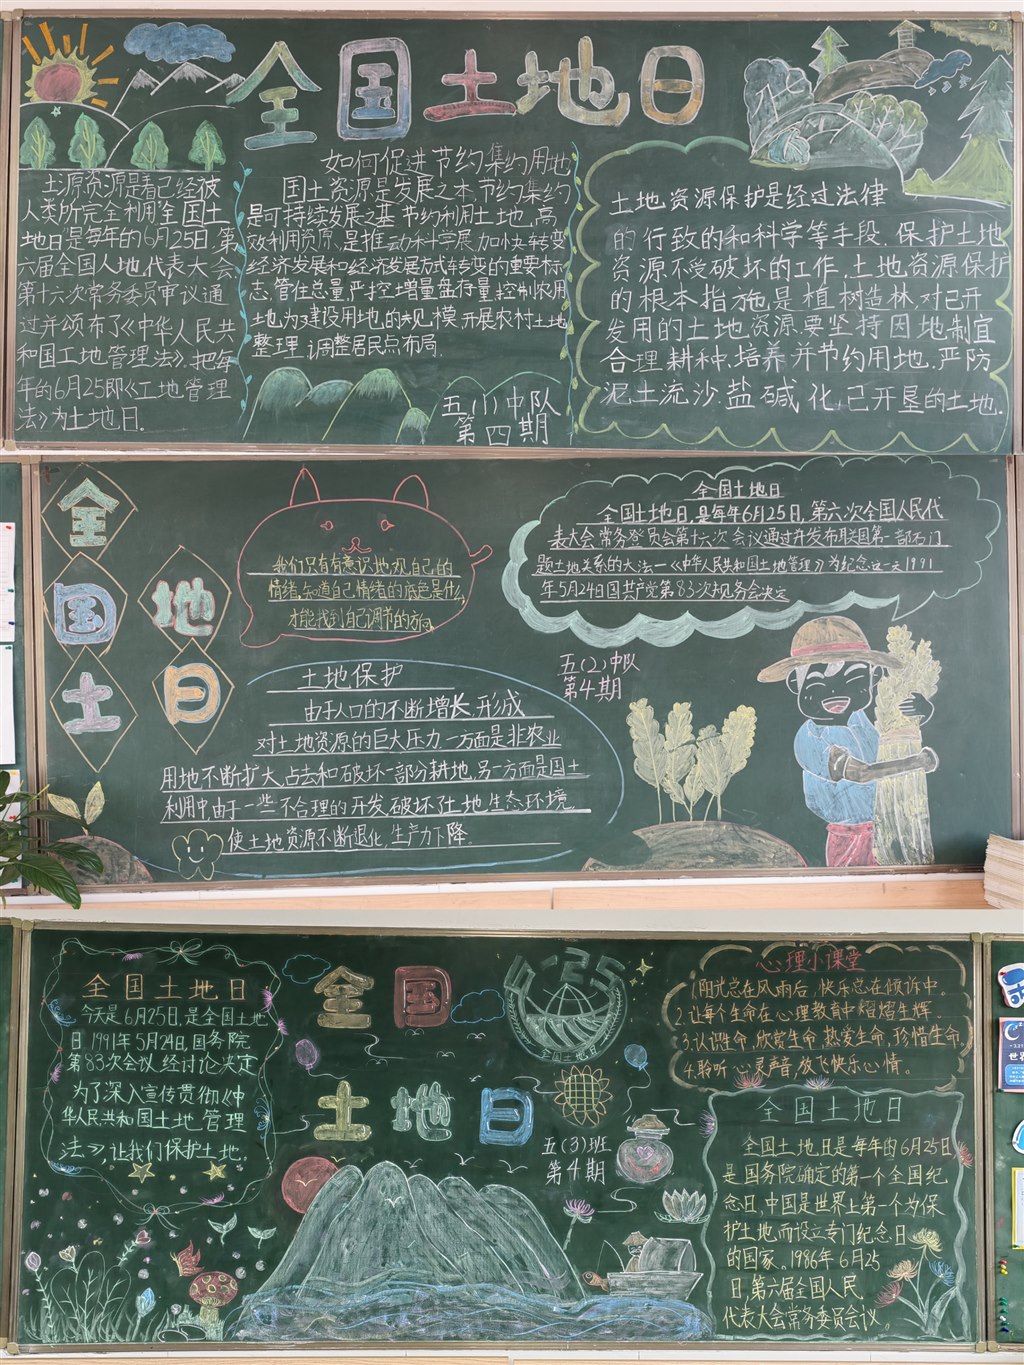 全国土地日
土源资源是看己经被
人类所完全利用"全国土
地日"是每年的6月25日.第
六届全国人地代表大会
第十六次常务委员审议通
过并颁布了《中华人民共
和国工地管理法》.把每
年的6月25即《工地管理
法》为土地日.
如何促进节约集约用地
国土资源是发展之本.节约集约
是可持续发展之基 节约利用土地、高
效利用资原、是推动科学展.加快转变
经济发展和经济发展方式转变的重要标
志.管住总量.严控增量盘存量.控制农用
地为建设用地的规模.开展农村土地
整理.调整居民点布局.
五(1)中队
第四期
土地资源保护是经过法律
的行致的和科学等手段.保护土地
资源不受破坏的工作.土地资源保护
的根本指施.是植树造林.对已开
发用的土地资源.要坚持因地制宜
合理耕种.培养并节约用地.严防
泥土流沙.盐碱化.已开垦的土地.
全国土地日
我们只有有意识地观自己的
情绪.知道自己情绪的底色是什么
才能找到自己调节的方向
全国土地日
全国土地日.是每年6月25日.第六次全国人民代
表大会常务登员会第十六次会议通过并发布联国第一部石门
题土地关系的大法一《中华人民共和国土地管理》为纪念这一天1991
年5月24日国共产党第83次规务会决定
五(2)中队
第4期
土地保护
由于人口的不断增长.形成
对土地资源的巨大压力.一方面是非农业
用地不断扩大.占去和破坏一部分耕地.另一方面是国土
利用中.由于一些不合理的开发.破坏土地生态环境
使土地资源不断退化.生产力下降.
全国土地日
6·25
全国土地日
全国土地日
今天是6月25日.是全国土地
日.1991年5月24日.国务院
第83次会议.经讨论决定
为了深入宣传贯彻《中
华人民共和国土地管理
法》.让我们保护土地。
五(3)班
第4期
心理小课堂
1.阳光总在风雨后，快乐总在倾诉中。
2.让每个生命在心理教育中熠熠生辉.
3.认识生命,欣赏生命,热爱生命,珍惜生命.
4.聆听心灵声音,放飞快乐心情。
全国土地日
全国土地日是每年的6月25日
是国务院确定的第一个全国纪
念日,中国是世界上第一个为保
护土地而设立专门纪念日
的国家。1986年6月25
日.第六届全国人民
代表大会常务委员会议。